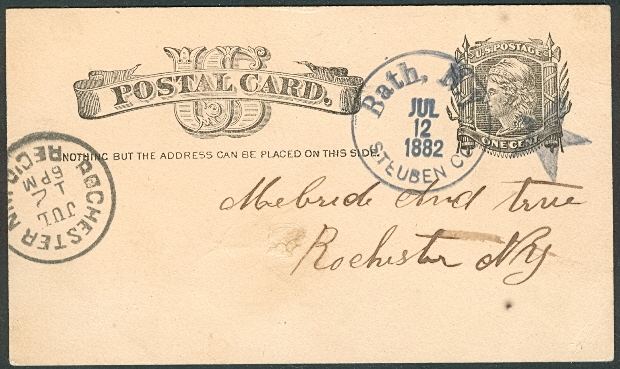 US
POSTAL CARD.
NOTHING BUT THE ADDRESS CAN BE PLACED ON THIS SIDE.
U.S. POSTAGE
ONE CENT
Bath, N.Y.
JUL
12
1882
STEUBEN CO.
ROCHESTER N.Y.
JUL
6PM
REC'D
Mcbride And true
Rochester NY